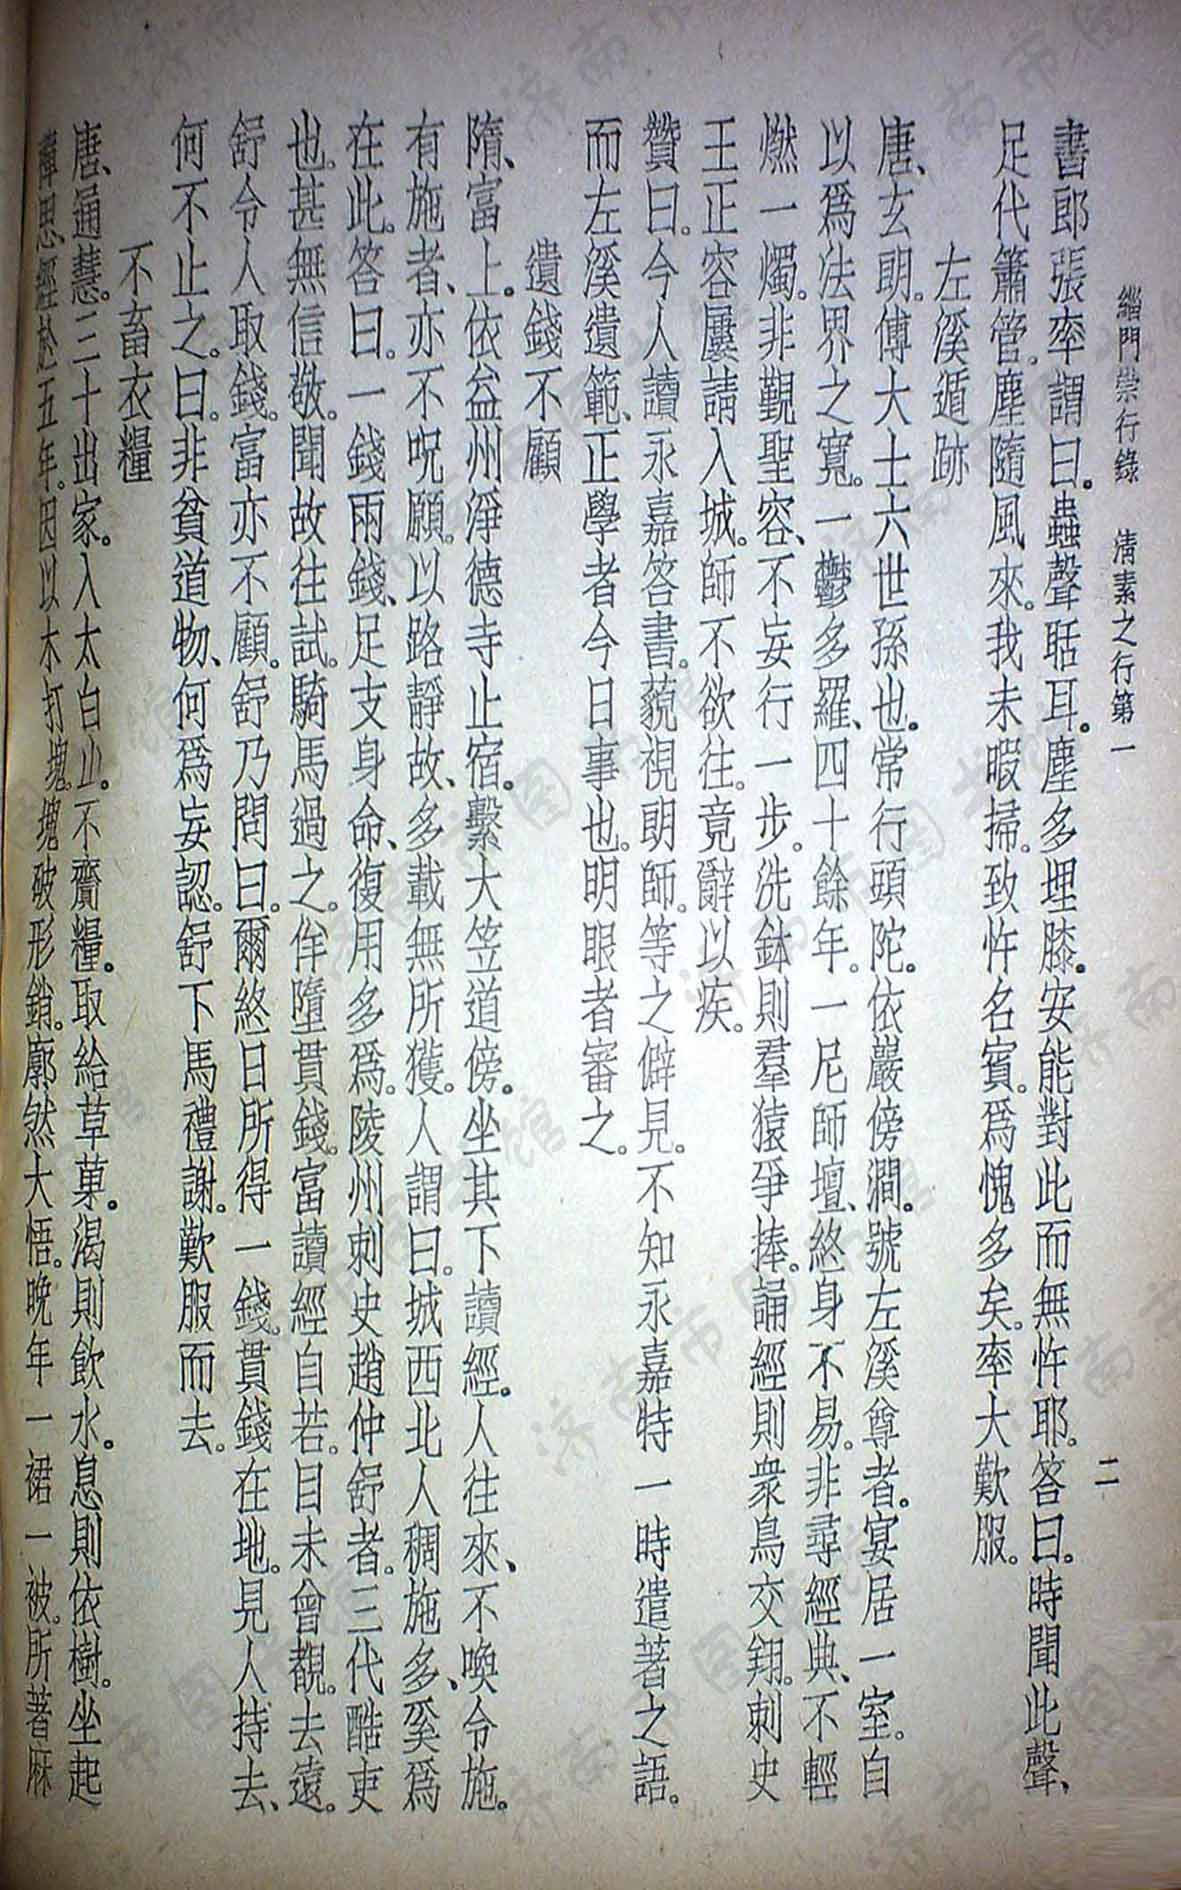 緇門崇行錄　清素之行第一　二
書郎張率謂曰。蟲聲聒耳。塵多埋膝。安能對此而無忤耶。答曰。時聞此聲、
足代簫管。塵隨風來。我未暇掃。致忤名賓。爲愧多矣。率大歎服。
左溪遁跡
唐、玄朗。傅大士六世孫也。常行頭陀。依巖傍澗。號左溪尊者。宴居一室。自
以爲法界之寬。一鬱多羅、四十餘年。一尼師壇、終身不易。非尋經典、不輕
燃一燭。非覲聖容、不妄行一步。洗鉢則羣猿爭捧。誦經則衆鳥交翔。刺史
王正容屢請入城。師不欲往。竟辭以疾。
贊曰。今人讀永嘉答書。藐視朗師。等之僻見。不知永嘉特一時遣著之語。
而左溪遺範、正學者今日事也。明眼者審之。
遺錢不顧
隋、富上。依益州淨德寺止宿。繫大笠道傍。坐其下讀經。人往來、不喚令施。
有施者、亦不呪願。以路靜故、多載無所獲。人謂曰。城西北人稠施多、奚爲
在此。答曰。一錢兩錢、足支身命、復用多爲。陵州刺史趙仲舒者。三代酷吏
也。甚無信敬。聞故往試。騎馬過之。佯墮貫錢。富讀經自若。目未曾覩。去遠。
舒令人取錢。富亦不顧。舒乃問曰。爾終日所得一錢。貫錢在地。見人持去、
何不止之。曰。非貧道物、何爲妄認。舒下馬禮謝。歎服而去。
不畜衣糧
唐、通慧。三十出家。入太白山。不齎糧。取給草菓。渴則飲水。息則依樹。坐起
禪思。經於五年。因以木打塊。塊破形銷。廓然大悟。晚年一裙一被。所著麻